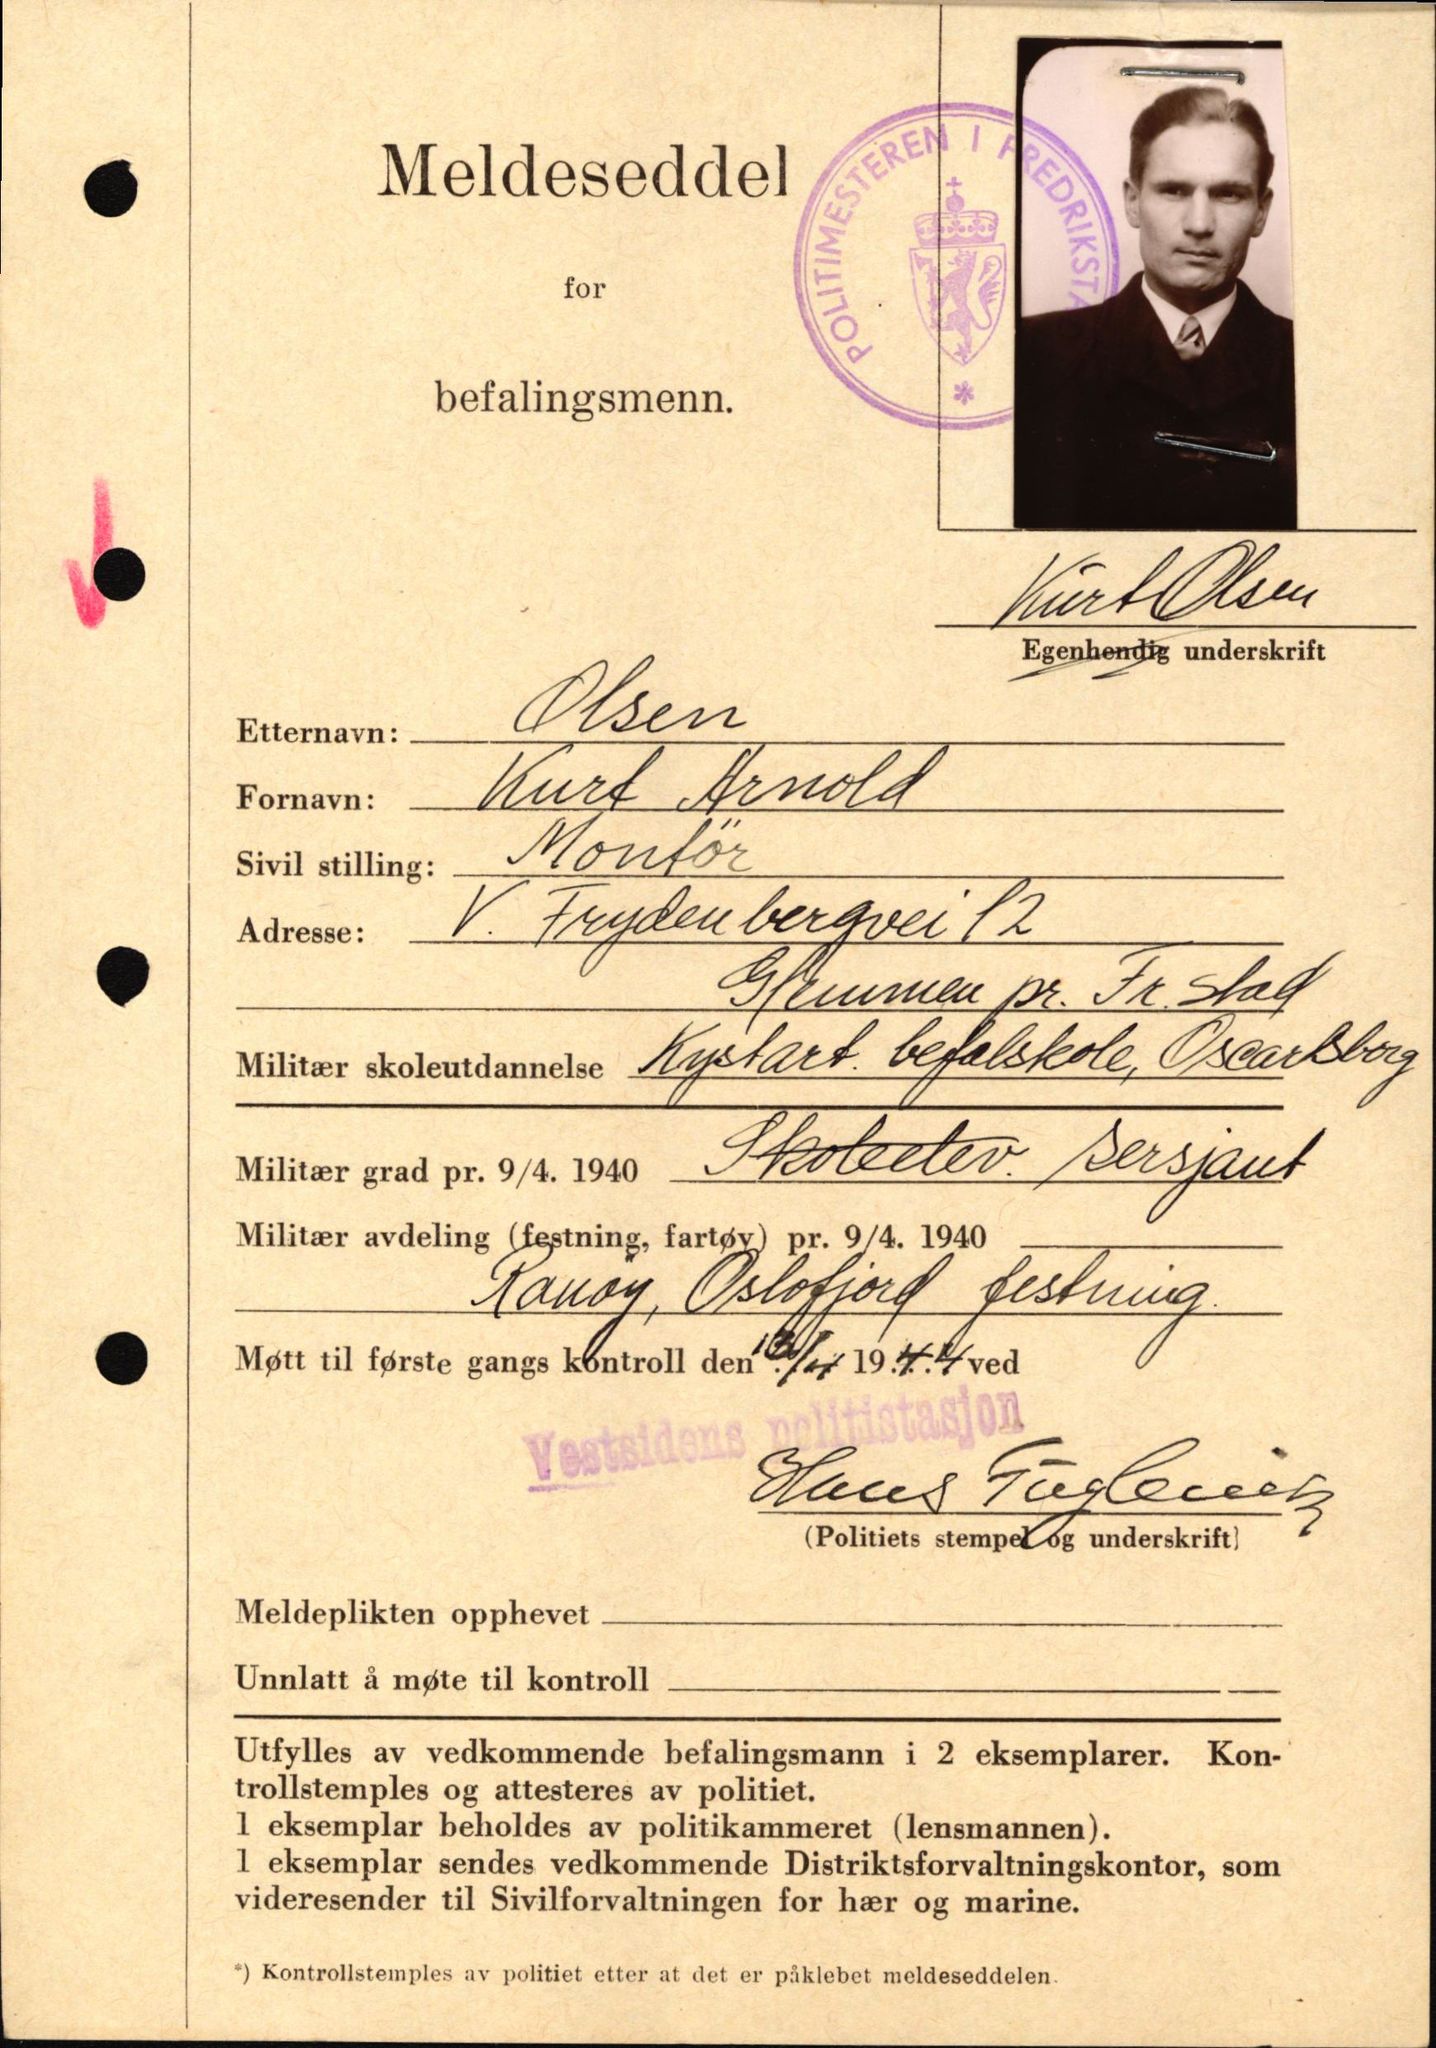 Meldeseddel
for
befalingsmenn.
POLITIMESTEREN I FREDRIKSTA
Kurt Olsen
Egenhendig underskrift
Etternavn: Olsen
Fornavn: Kurt Arnold
Sivil stilling: Montör
Adresse: V. Frydenbergvei 12
Glemmen pr. Fr.stad
Militær skoleutdannelse Kystart. befalskole, Oscarsborg
Militær grad pr. 9/4. 1940 Skoleelev. sersjant
Militær avdeling (festning, fartøy) pr. 9/4. 1940
Rauöy, Oslofjord festning.
Møtt til første gangs kontroll den 1944 ved
Vestsidens politistasjon
Hans
(Politiets stempel og underskrift)
Meldeplikten opphevet
Unnlatt å møte til kontroll
Utfylles av vedkommende befalingsmann i 2 eksemplarer. Kon-
trollstemples og attesteres av politiet.
1 eksemplar beholdes av politikammeret (lensmannen).
1 eksemplar sendes vedkommende Distriktsforvaltningskontor, som
videresender til Sivilforvaltningen for hær og marine.
*) Kontrollstemples av politiet etter at det er påklebet meldeseddelen.